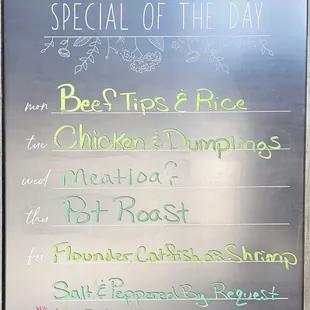 SPECIAL OF THE DAY
mon Beef Tips & Rice
tue Chicken & Dumplings
wed Meatloaf
thu Pot Roast
fri Flounder, Catfish or Shrimp
Salt & Peppered By Request